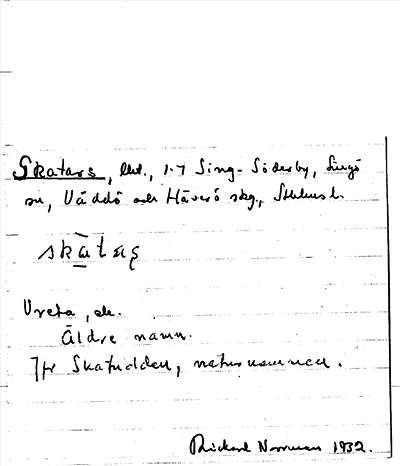 Skatars, lht., 1-7 Sing-Söderby, Singö
sn, Väddö och Häverö skg., Sthlms l.
skàtaṣ
Vreta, åk.
Äldre namn.
Jfr Skatudden, naturnamnen.
Rickard Norrman 1932.